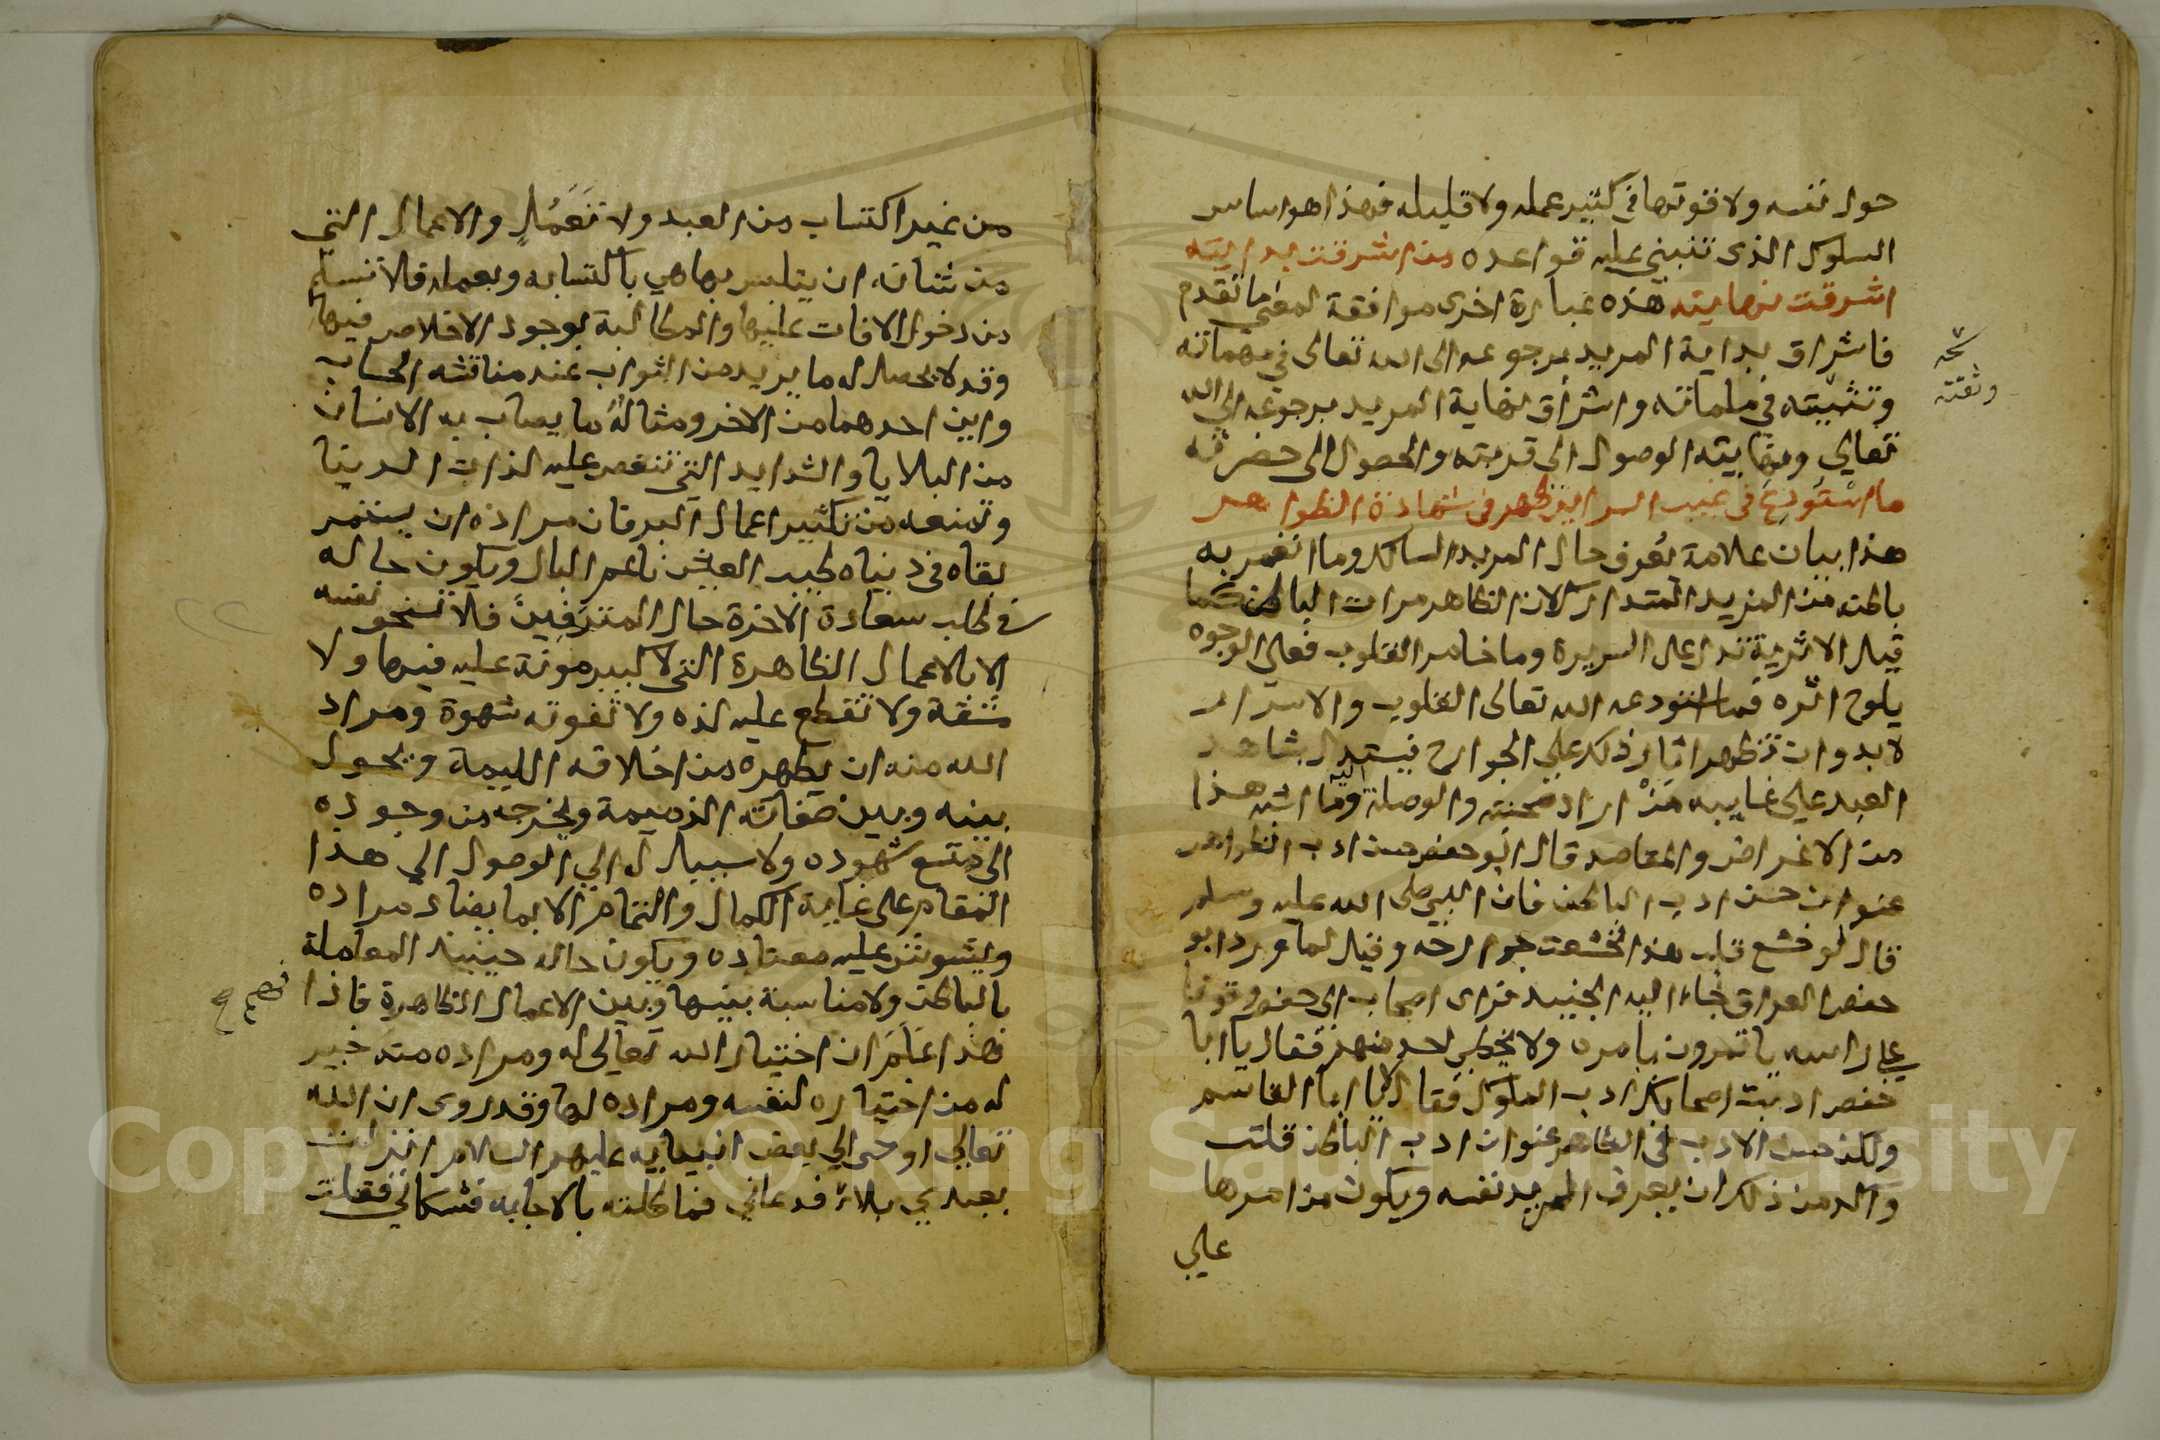 حول نفسه ولا قوتها في كثير عمله ولا قليله فهذا هو اساس
السلوك الذى تنبني عليه قواعده من اشرقت بدايته
اشرقت نهايته هذه عبارة اخرى موافقة لمعنى ما تقدم
فاشراق بداية المريد برجوعه الى الله تعالى في مهماته
وتثبيته في ملماته واشراق نهاية المريد برجوعه الى الله
تعالى ونهايته الوصول الى قربته والحصول الى حضرته
ما استودع في غيب السراير ظهر في شهادة الظواهر
هذا بيان علامة يعرف حال المريد السالك وما انغمر به
باطنه من المزيد المتدارك لان الظاهر مرات الباطن كما
قيل الاثرية تدل على السريرة وما خامر القلوب فعلى الوجوه
يلوح اثره فما استودعه الله تعالى القلوب والاسرار
لا بد وان تظهر اثار ذلك على الجوارح فيستدل بشاهد
العبد على غايبه من اراد صحبته والوصلة اليه وما اشبه هذا
من الاغراض والمقاصد قال ابو حفص حسن ادب الظواهر
عنوان حسن ادب الباطن فان النبي صلى الله عليه وسلم
قال لو خشع قلب هذا لخشعت جوارحه وقيل لما ورد ابو
حفص العراق جاء اليه الجنيد فراى اصحاب ابى حفص وقوفا
على راسه ياتمرون بامره ولا يخطى احد منهم فقال يا ابا
حفص ادبت اصحابك ادب الملوك فقال لا يا ابا القاسم
ولكن حسن الادب في الظاهر عنوان ادب الباطن قلت
وآكد من ذلك ان يعرف المريد نفسه ويكون من امرها
على
وثقته
من غير اكتساب من العبد ولا تعمل والاعمال التي
من شانه ان يتلبس بها هي باكتسابه وبعمله فلا تسلم
من دخول الافات عليها والمطالبة بوجود الاخلاص فيها
وقد لا يحصل له ما يريد من الثواب عند مناقشه الحساب
واين احدهما من الاخر ومثاله ما يصاب به الانسان
من البلايا والشدايد التي تنغص عليه لذات الدنيا
وتمنعه من تكثير اعمال البر فان مراده ان يستمر
بقاه في دنياه طيب العيش ناعم البال ويكون حاله
في طلب سعادة الاخرة حال المترفين فلا تسخو نفسه
الا بالاعمال الظاهرة التي لا كبير مونة عليه فيها ولا
مشقة ولا تقطع عليه لذه ولا تفوته شهوة ومراد
الله منه ان يطهره من اخلاقه الليمة ويحول
بينه وبين صفاته الذميمة ويخرجه من وجوده
الى متسع شهوده ولا سبيل له الي الوصول الي هذا
المقام على غاية الكمال والتمام الا بما يضاد مراده
ويشوش عليه معتاده ويكون حاله حينيذ المعاملة
بالباطن ولا مناسبة بينها وبين الاعمال الظاهرة فاذا
فهم هذا علم ان اختيار الله تعالى له ومراده منه خير
له من اختياره لنفسه ومراده لها وقد روى ان الله
تعالي اوحى الي بعض انبيايه عليهم السلام انزلت
بعبدي بلاء فدعاني فماطلته بالاجابه فشكاني فقلت